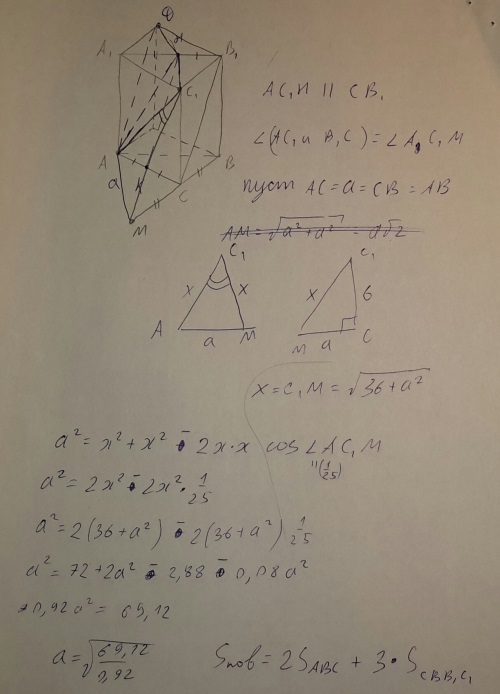 D
A₁ H B₁
C₁
A B
a K C
M
AC₁И || CB₁
∠(AC₁ и B₁C) = ∠A C₁ M
пуст AC = a = CB = AB
AM = √(a² + a²) = a√2
C₁ C₁
x x x 6
A a M M a C
x = C₁M = √(36 + a²)
a² = x² + x² - 2x·x cos ∠AC₁M
"(1/25)
a² = 2x² - 2x² · 1/25
a² = 2(36 + a²) - 2(36 + a²) 1/25
a² = 72 + 2a² - 2,88 - 0,08a²
-0,92a² = 69,12
a = √(69,12/0,92) Sпов = 2S_ABC + 3·S_CBB₁C₁